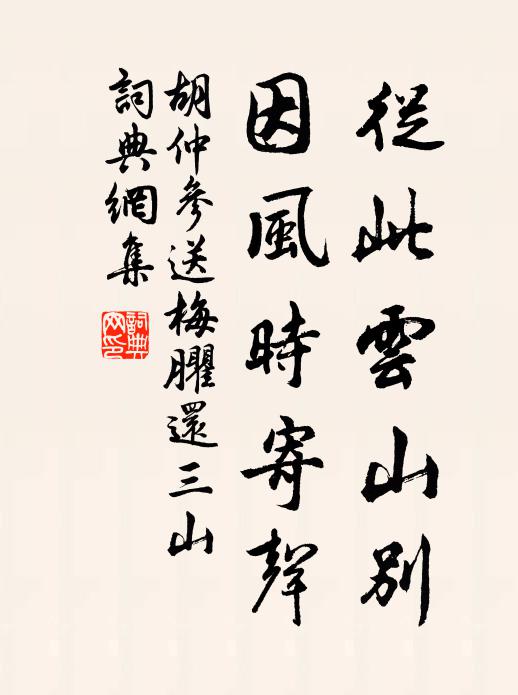 從此雲山別
因風時寄聲
胡仲參送梅臞還三山
詞典網集
詞典
网印